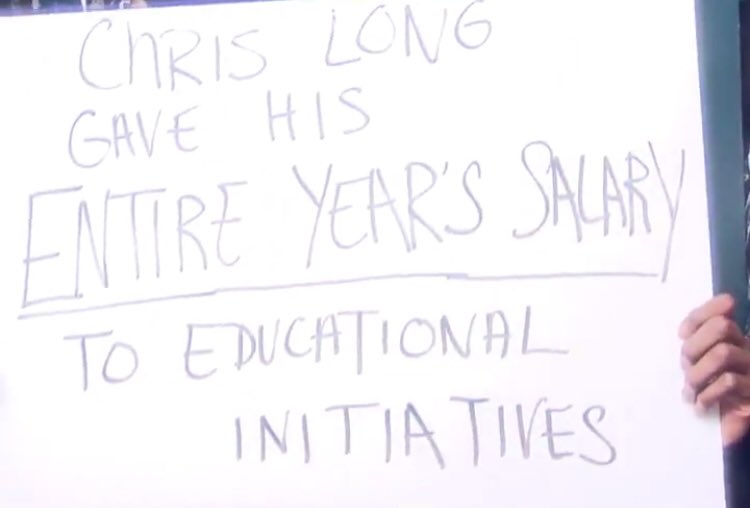 ChRIS LONG
GAVE HIS
ENTIRE YEAR'S SALARY
TO EDUCATIONAL
INITIATIVES